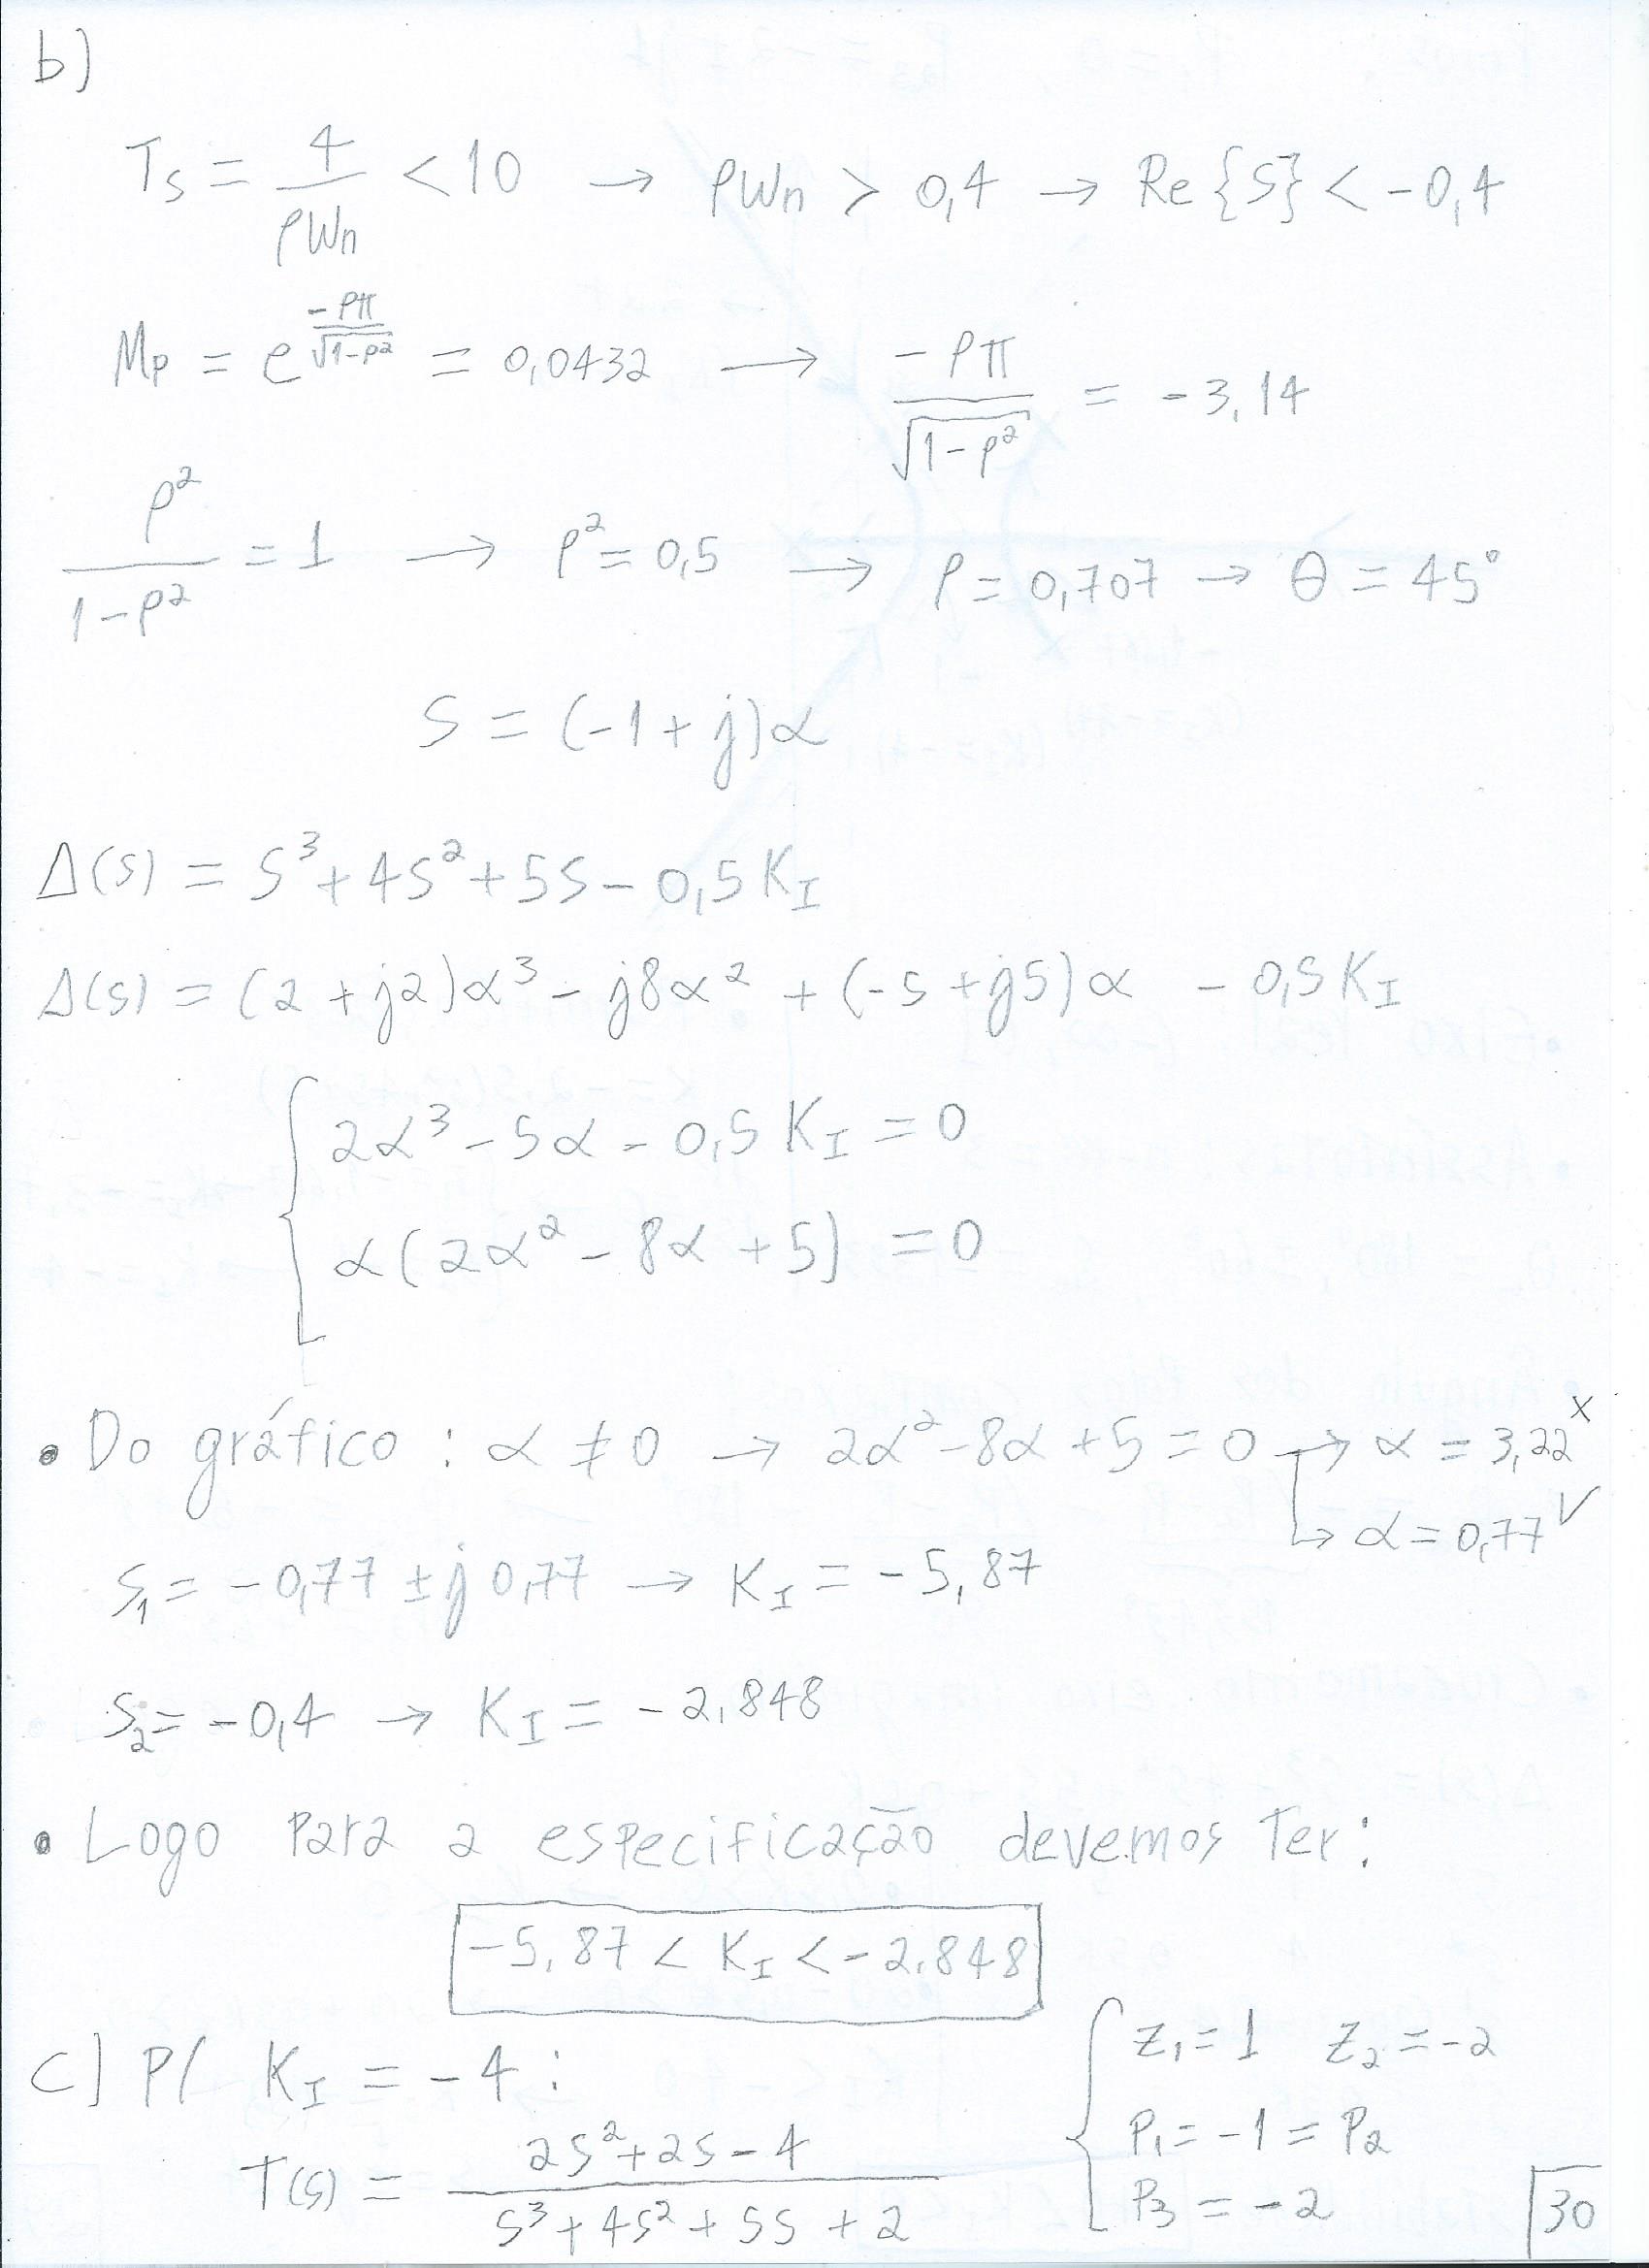 b)
Ts = 4/ρWn < 10 → ρWn > 0,4 → Re{s} < -0,4
Mp = e^(-ρπ/√(1-ρ²)) = 0,0432 → -ρπ/√(1-ρ²) = -3,14
ρ²/(1-ρ²) = 1 → ρ² = 0,5 → ρ = 0,707 → θ = 45°
S = (-1+j)α
Δ(s) = S³ + 4S² + 5S - 0,5 K_I
Δ(s) = (2+j2)α³ - j8α² + (-5+j5)α - 0,5 K_I
2α³ - 5α - 0,5 K_I = 0
α(2α² - 8α + 5) = 0
• Do gráfico : α ≠ 0 → 2α² - 8α + 5 = 0 → α = 3,22 x
↳ α = 0,77 ✓
S₁ = -0,77 ± j 0,77 → K_I = -5,87
S₂ = -0,4 → K_I = -2,848
• Logo para a especificação devemos ter:
-5,87 < K_I < -2,848
c) P/ K_I = -4 :
T(s) = (2s² + 2s - 4)/(s³ + 4s² + 5s + 2)
Z₁ = 1 Z₂ = -2
P₁ = -1 = P₂
P₃ = -2
30